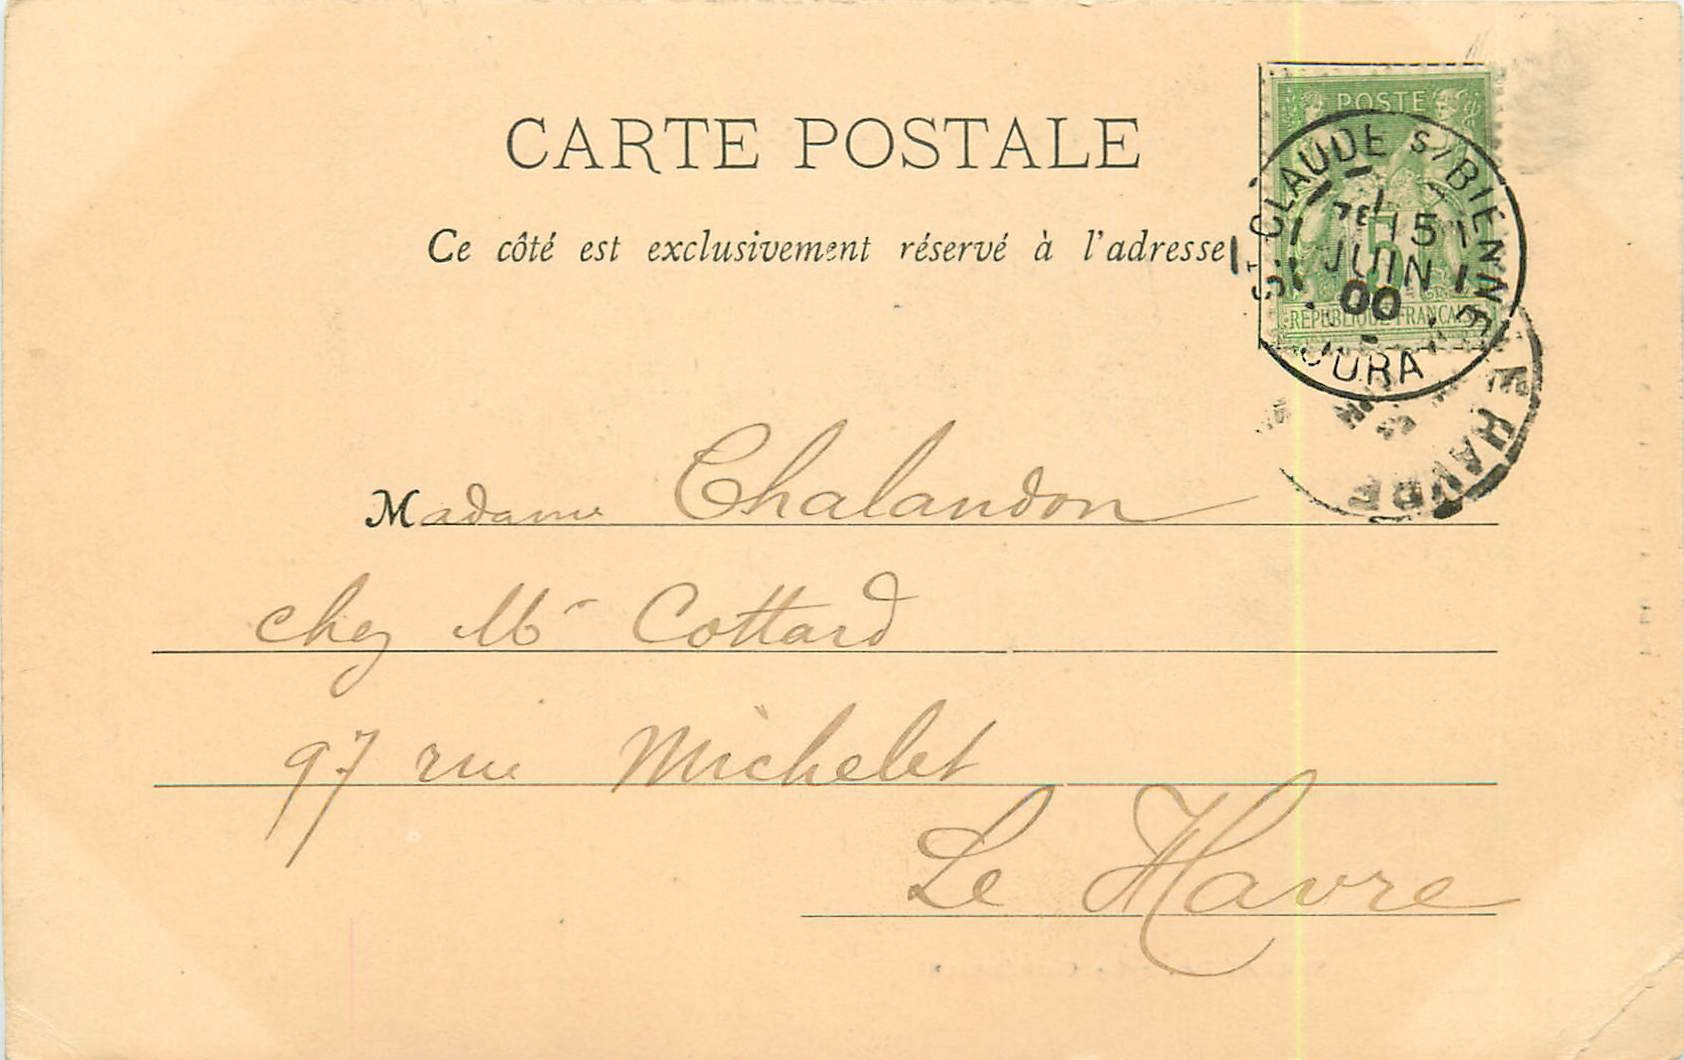 CARTE POSTALE
Ce côté est exclusivement réservé à l'adresse
POSTE
5
RÉPUBLIQUE FRANÇAISE
ST CLAUDE S/BIENNE
15
JUIN
00
JURA
LE HAVRE
Madame Chalandon
chez Mr Cottard
97 rue Michelet
Le Havre